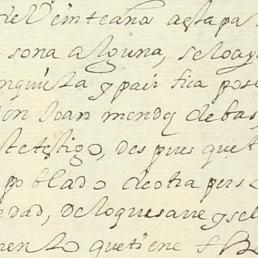 de Veinte años a esta pa
sona alguna, se lo ay
nquieta y pacifica pose
Don Joan mendez de bas
te testigo, des pues que t
po blado de otra pers
edad, de lo que saue y se
mento que tiene